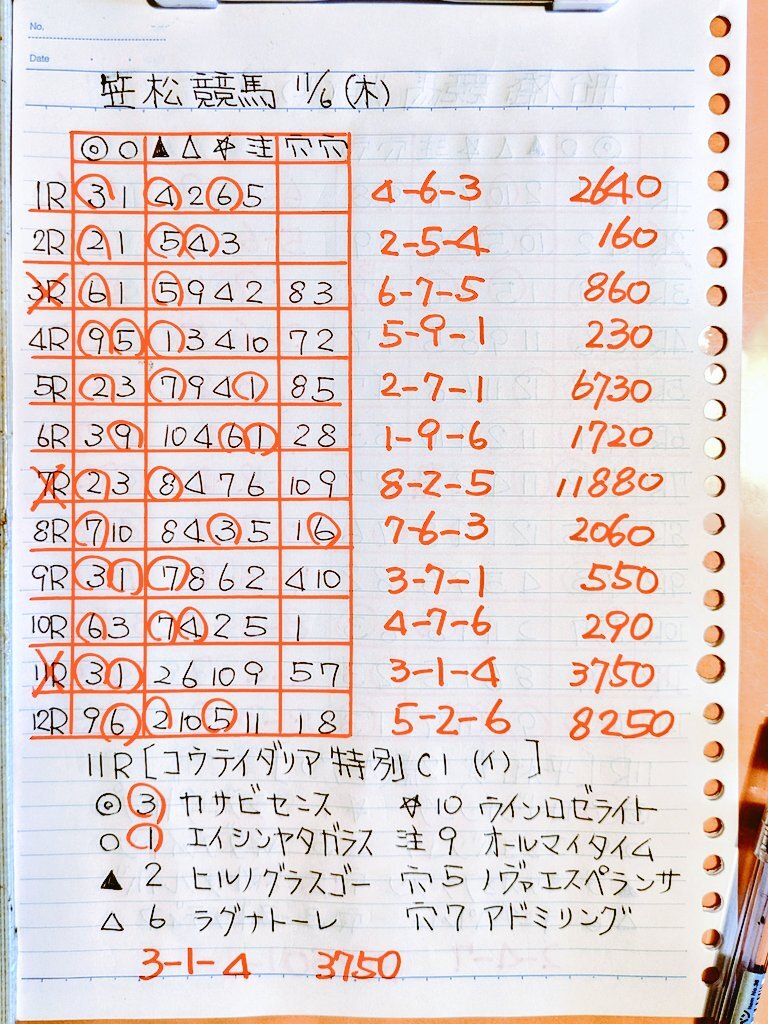 No.
Date
笠松競馬 11/6 (木)
◎ ○ ▲ △ ☆ 注 穴 穴
1R 3 1 4 2 6 5 4-6-3 2640
2R 2 1 5 4 3 2-5-4 160
3R 6 1 5 9 4 2 8 3 6-7-5 860
4R 9 5 1 3 4 10 7 2 5-9-1 230
5R 2 3 7 9 4 1 8 5 2-7-1 6730
6R 3 9 10 4 6 1 2 8 1-9-6 1720
7R 2 3 8 4 7 6 10 9 8-2-5 11880
8R 7 10 8 4 3 5 1 6 7-6-3 2060
9R 3 1 7 8 6 2 4 10 3-7-1 550
10R 6 3 7 4 2 5 1 4-7-6 290
11R 3 1 2 6 10 9 5 7 3-1-4 3750
12R 9 6 2 10 5 11 1 8 5-2-6 8250
11R [コウテイダリア特別 C1 (イ)]
◎ 3 カサビセンス ☆ 10 ウインロゼライト
○ 1 エイシンヤタガラス 注 9 オールマイタイム
▲ 2 ヒルノグラスゴー 穴 5 ノヴァエスペランサ
△ 6 ラグナトーレ 穴 7 アドミリング
3-1-4 3750